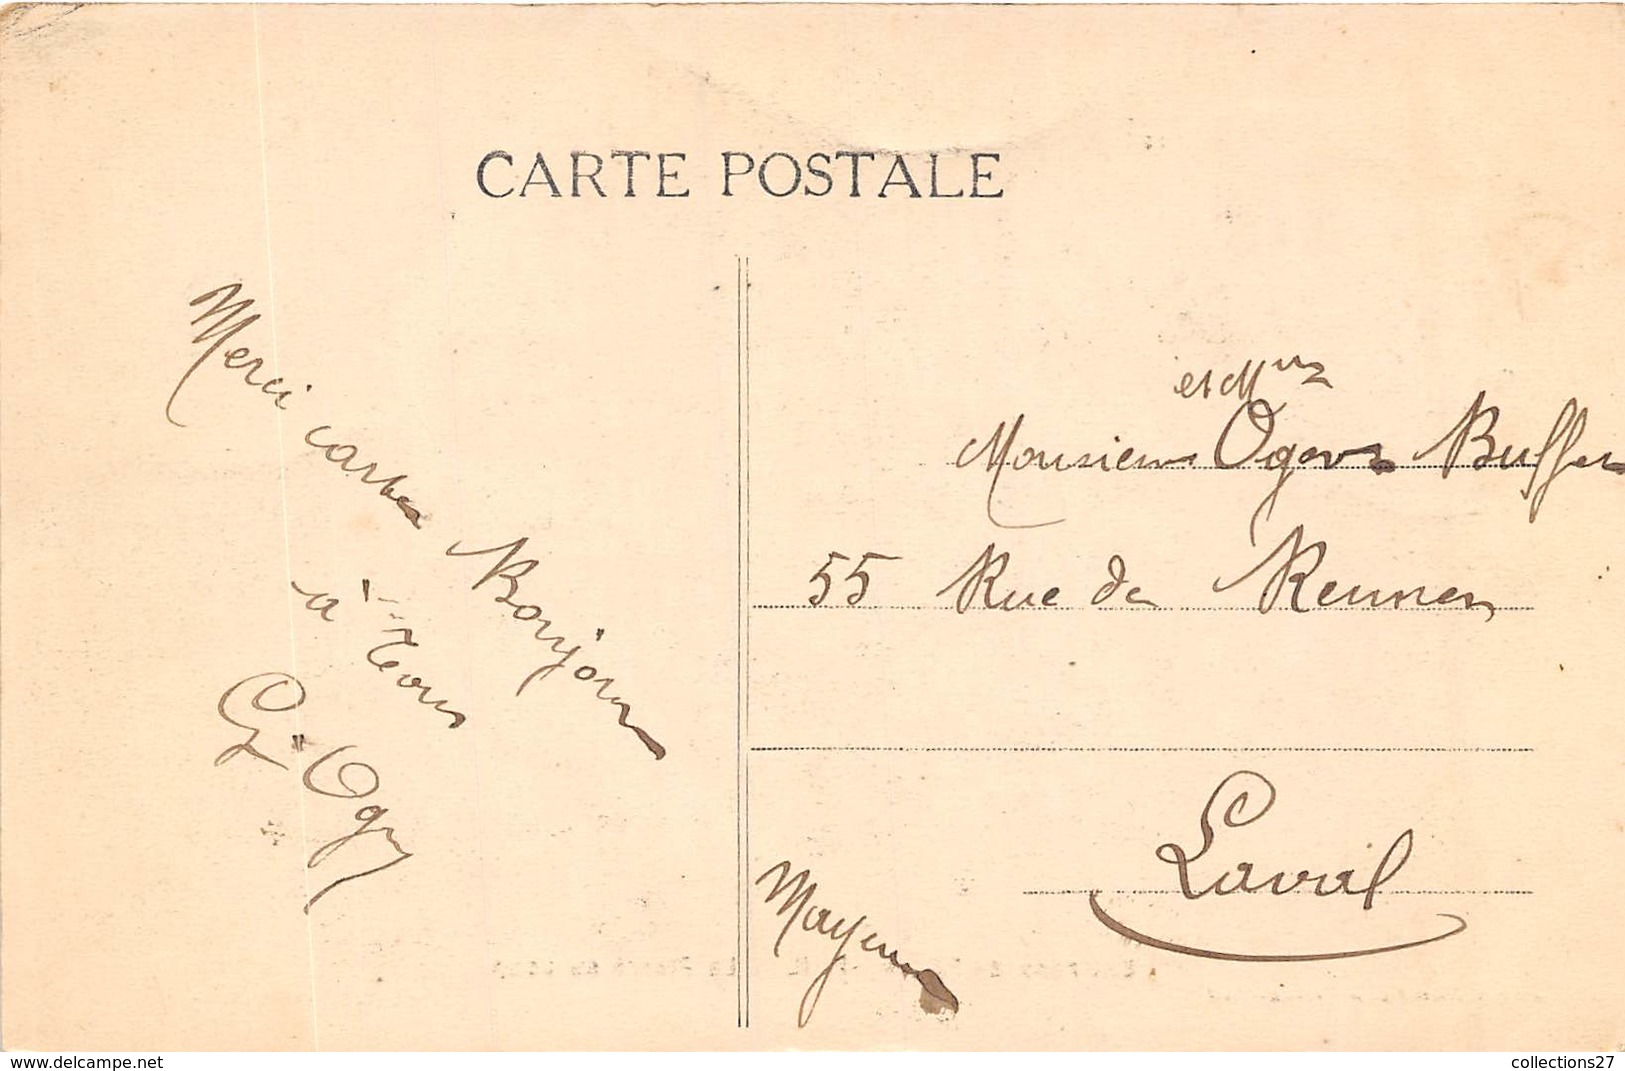 CARTE POSTALE
Merci cartes Bonjour
à Tous
G. Oger
et Mme
Monsieur Oger Buffet
55 Rue de Rennes
Laval
Mayenne
https://www.delcampe.net
collections27